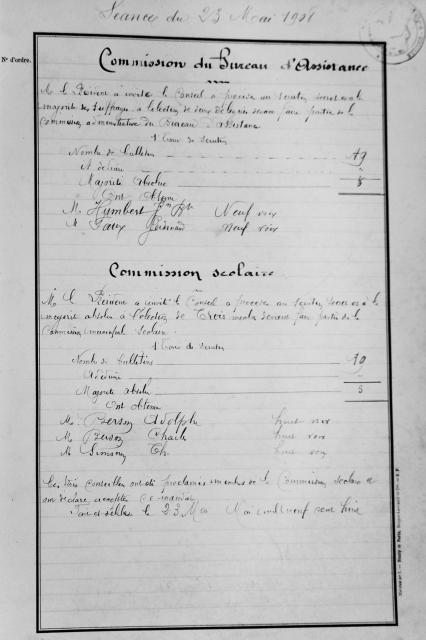 Séance du 23 Mai 1908
N° d'ordre.
Commission du Bureau d'Assistance
M. le Président a invité le Conseil a procéder au scrutin secret et à la
majorité des suffrages a l'élection de deux délégués devant faire partie de la
Commission administrative du Bureau d'Assistance
1 Tour de scrutin
Nombre de bulletins
A déduire
Majorité absolue
Ont obtenu
M. Humbert Neuf voix
M. Faux Neuf voix
Commission scolaire
M. le Président a invité le Conseil a procéder au scrutin secret et à la
majorité absolue à l'élection de Trois membres devant faire partie de la
Commission municipale scolaire.
1 Tour de scrutin
Nombre de bulletins
A déduire
Majorité absolue
Ont obtenu
M. Berson Adolphe huit voix
M. Berson Charles huit voix
M. Simson Th. huit voix
Les trois conseillers ont été proclamés membres de la Commission scolaire et
ont déclaré accepter ce mandat
Fait et délibéré le 23 Mai Mil neuf cent huit